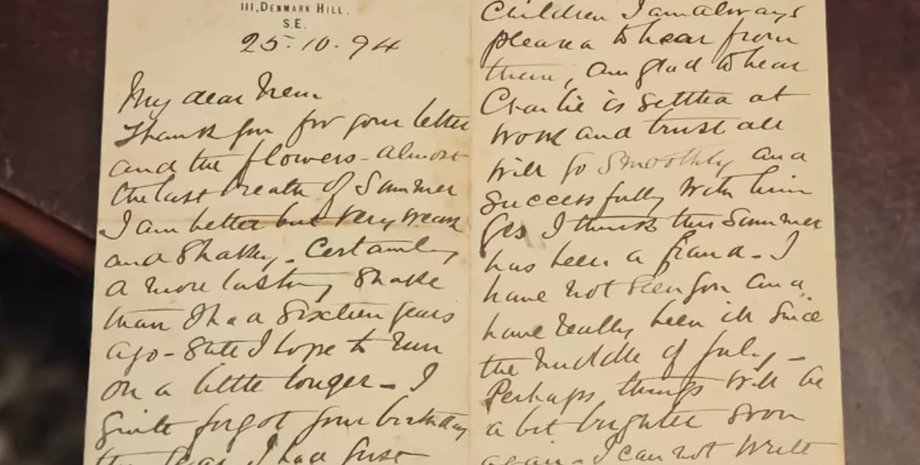 111, DENMARK HILL.
S.E.
25.10.94
My dear Nem
Thank you for your letter
and the flowers - almost
the last breath of Summer
I am better but very weak
and shaky - Certainly
a more lasting shake
than I had sixteen years
ago - Still I hope to run
on a little longer - I
quite forgot your birthday
this year I had just
Children I am always
pleased to hear from
them, am glad to hear
Charlie is settled at
work and trust all
will go smoothly and
successfully with him
Yes I think this Summer
has been a fraud - I
have not seen you and
have really been ill since
the middle of July -
Perhaps things will be
a bit brighter soon
again - I can not write